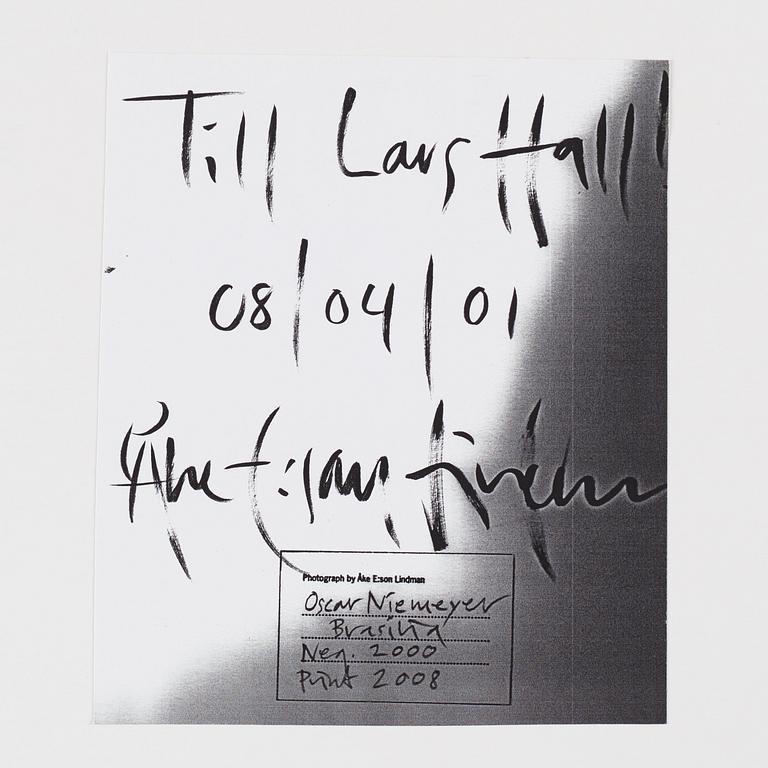 Till Lars Hall!
08/04/01
Åke E:son Lindman
Photograph by Åke E:son Lindman
Oscar Niemeyer
Brasilia
Neg. 2000
Print 2008